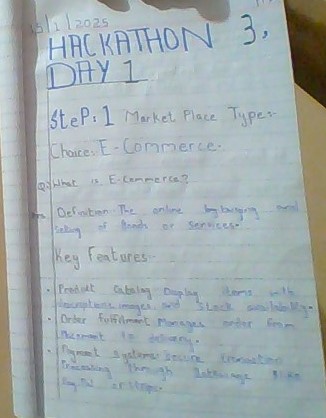 15/1/2025
HACKATHON 3,
DAY 1
SteP:1 Market Place Type:-
Choice: E-Commerce.
Q: What is E-Commerce?
Ans Definition: The online buying and
selling of Goods or services.
Key Features:-
• Product Catalog Display items with
descriptions, images, and Stock availability.
• Order fulfillment Manages order from
Placement to delivery.
• Payment systems: Secure transaction
Processing through Gateways like
or stripe.